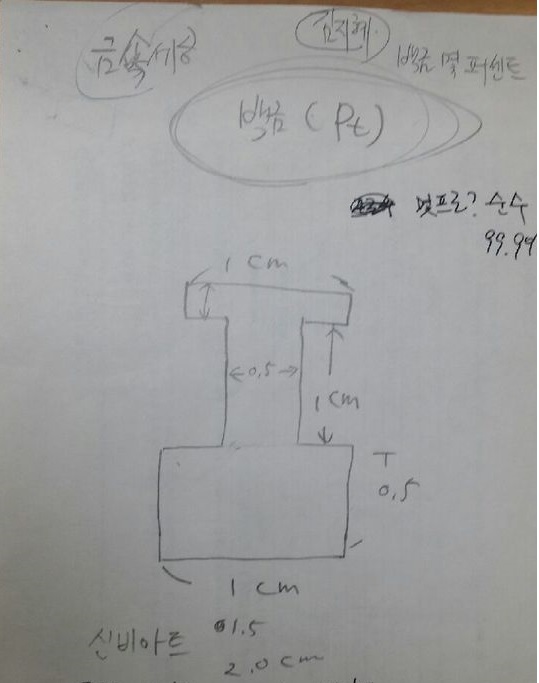 금속세공
김지현
백금 몇 퍼센트
백금 (Pt)
몇프로? 순수
99.99
1 cm
←0.5→
1 cm
T
0.5
1 cm
신비아트 1.5
2.0 cm